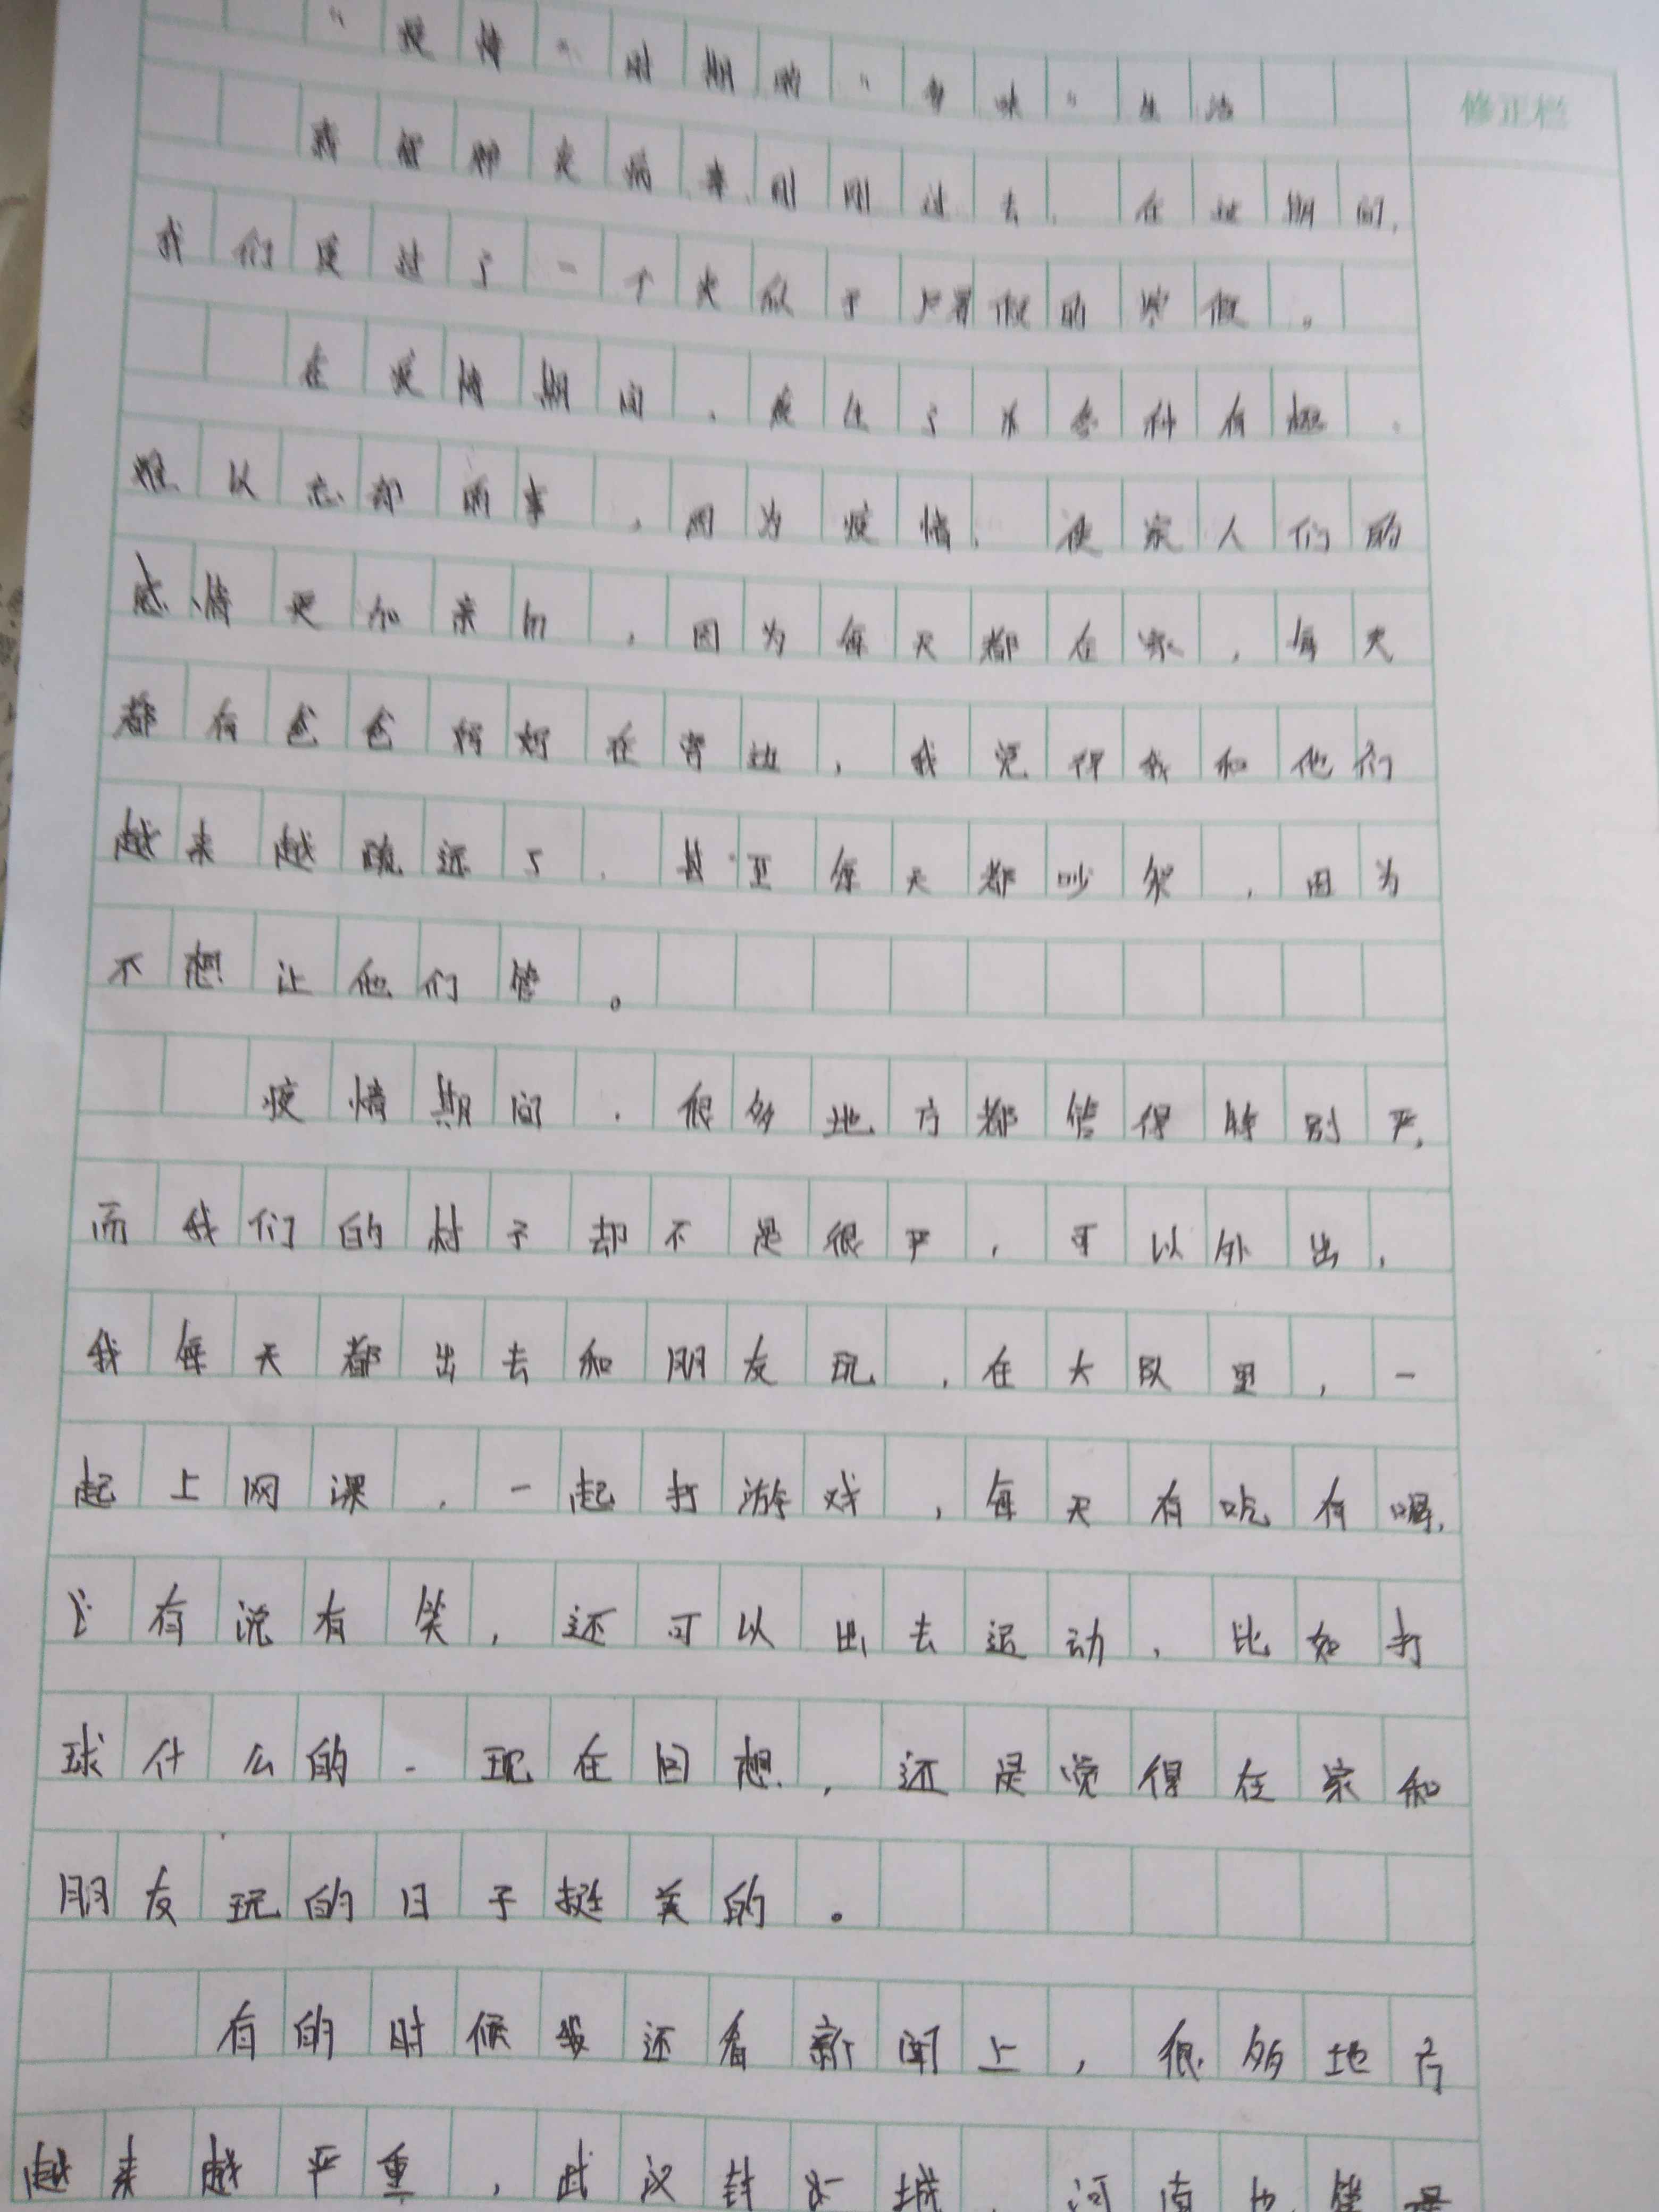 “疫情”时期的“趣味”生活
修正栏
新冠肺炎病毒刚刚过去,在这期间,
我们度过了一个类似于暑假的寒假。
在疫情期间,发生了各种有趣、
难以忘却的事,因为疫情,使家人们的
感情更加亲切,因为每天都在家,每天
都有爸爸妈妈在旁边,我觉得我和他们
越来越疏远了,甚至每天都吵架,因为
不想让他们管。
疫情期间,很多地方都管得特别严,
而我们的村子却不是很严,可以外出,
我每天都出去和朋友玩,在大队里,一
起上网课,一起打游戏,每天有吃有喝,
有说有笑,还可以出去运动,比如打
球什么的.现在回想,还是觉得在家和
朋友玩的日子挺美的。
有的时候我还看新闻上,很多地方
越来越严重,武汉封城,河南也管